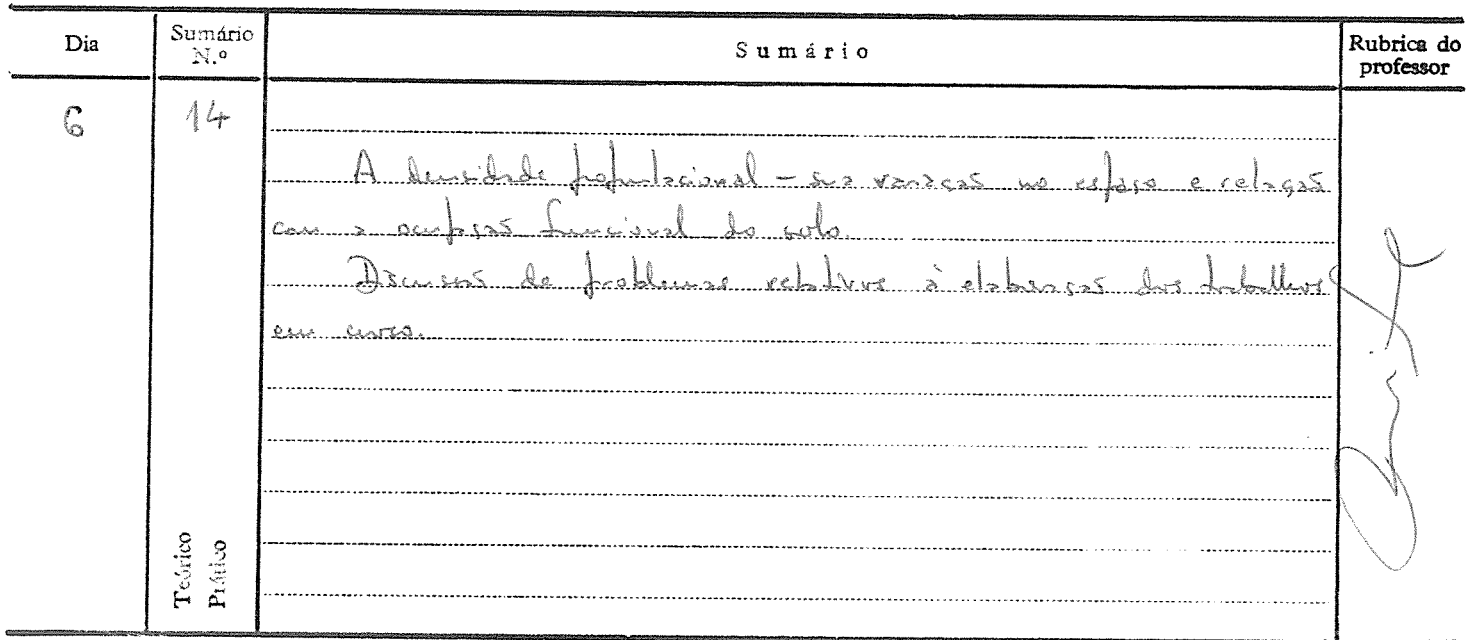 Dia
Sumário N.º
Sumário
Rubrica do professor
6
14
A densidade populacional - sua variação no espaço e relação
com a ocupação funcional do solo.
Discussão de problemas relativos à elaboração dos trabalhos
em curso.
Teórico
Prático